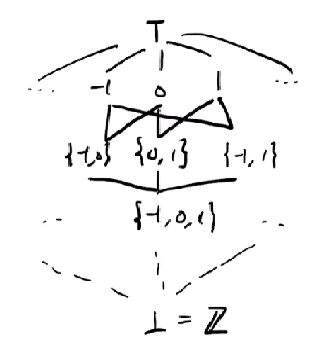 T
... -1 0 1 ...
{-1,0} {0,1} {-1,1}
... {-1,0,1} ...
⊥ = ℤ